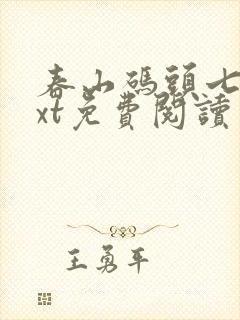 春山碼頭七
xt免費閱讀
王勇平